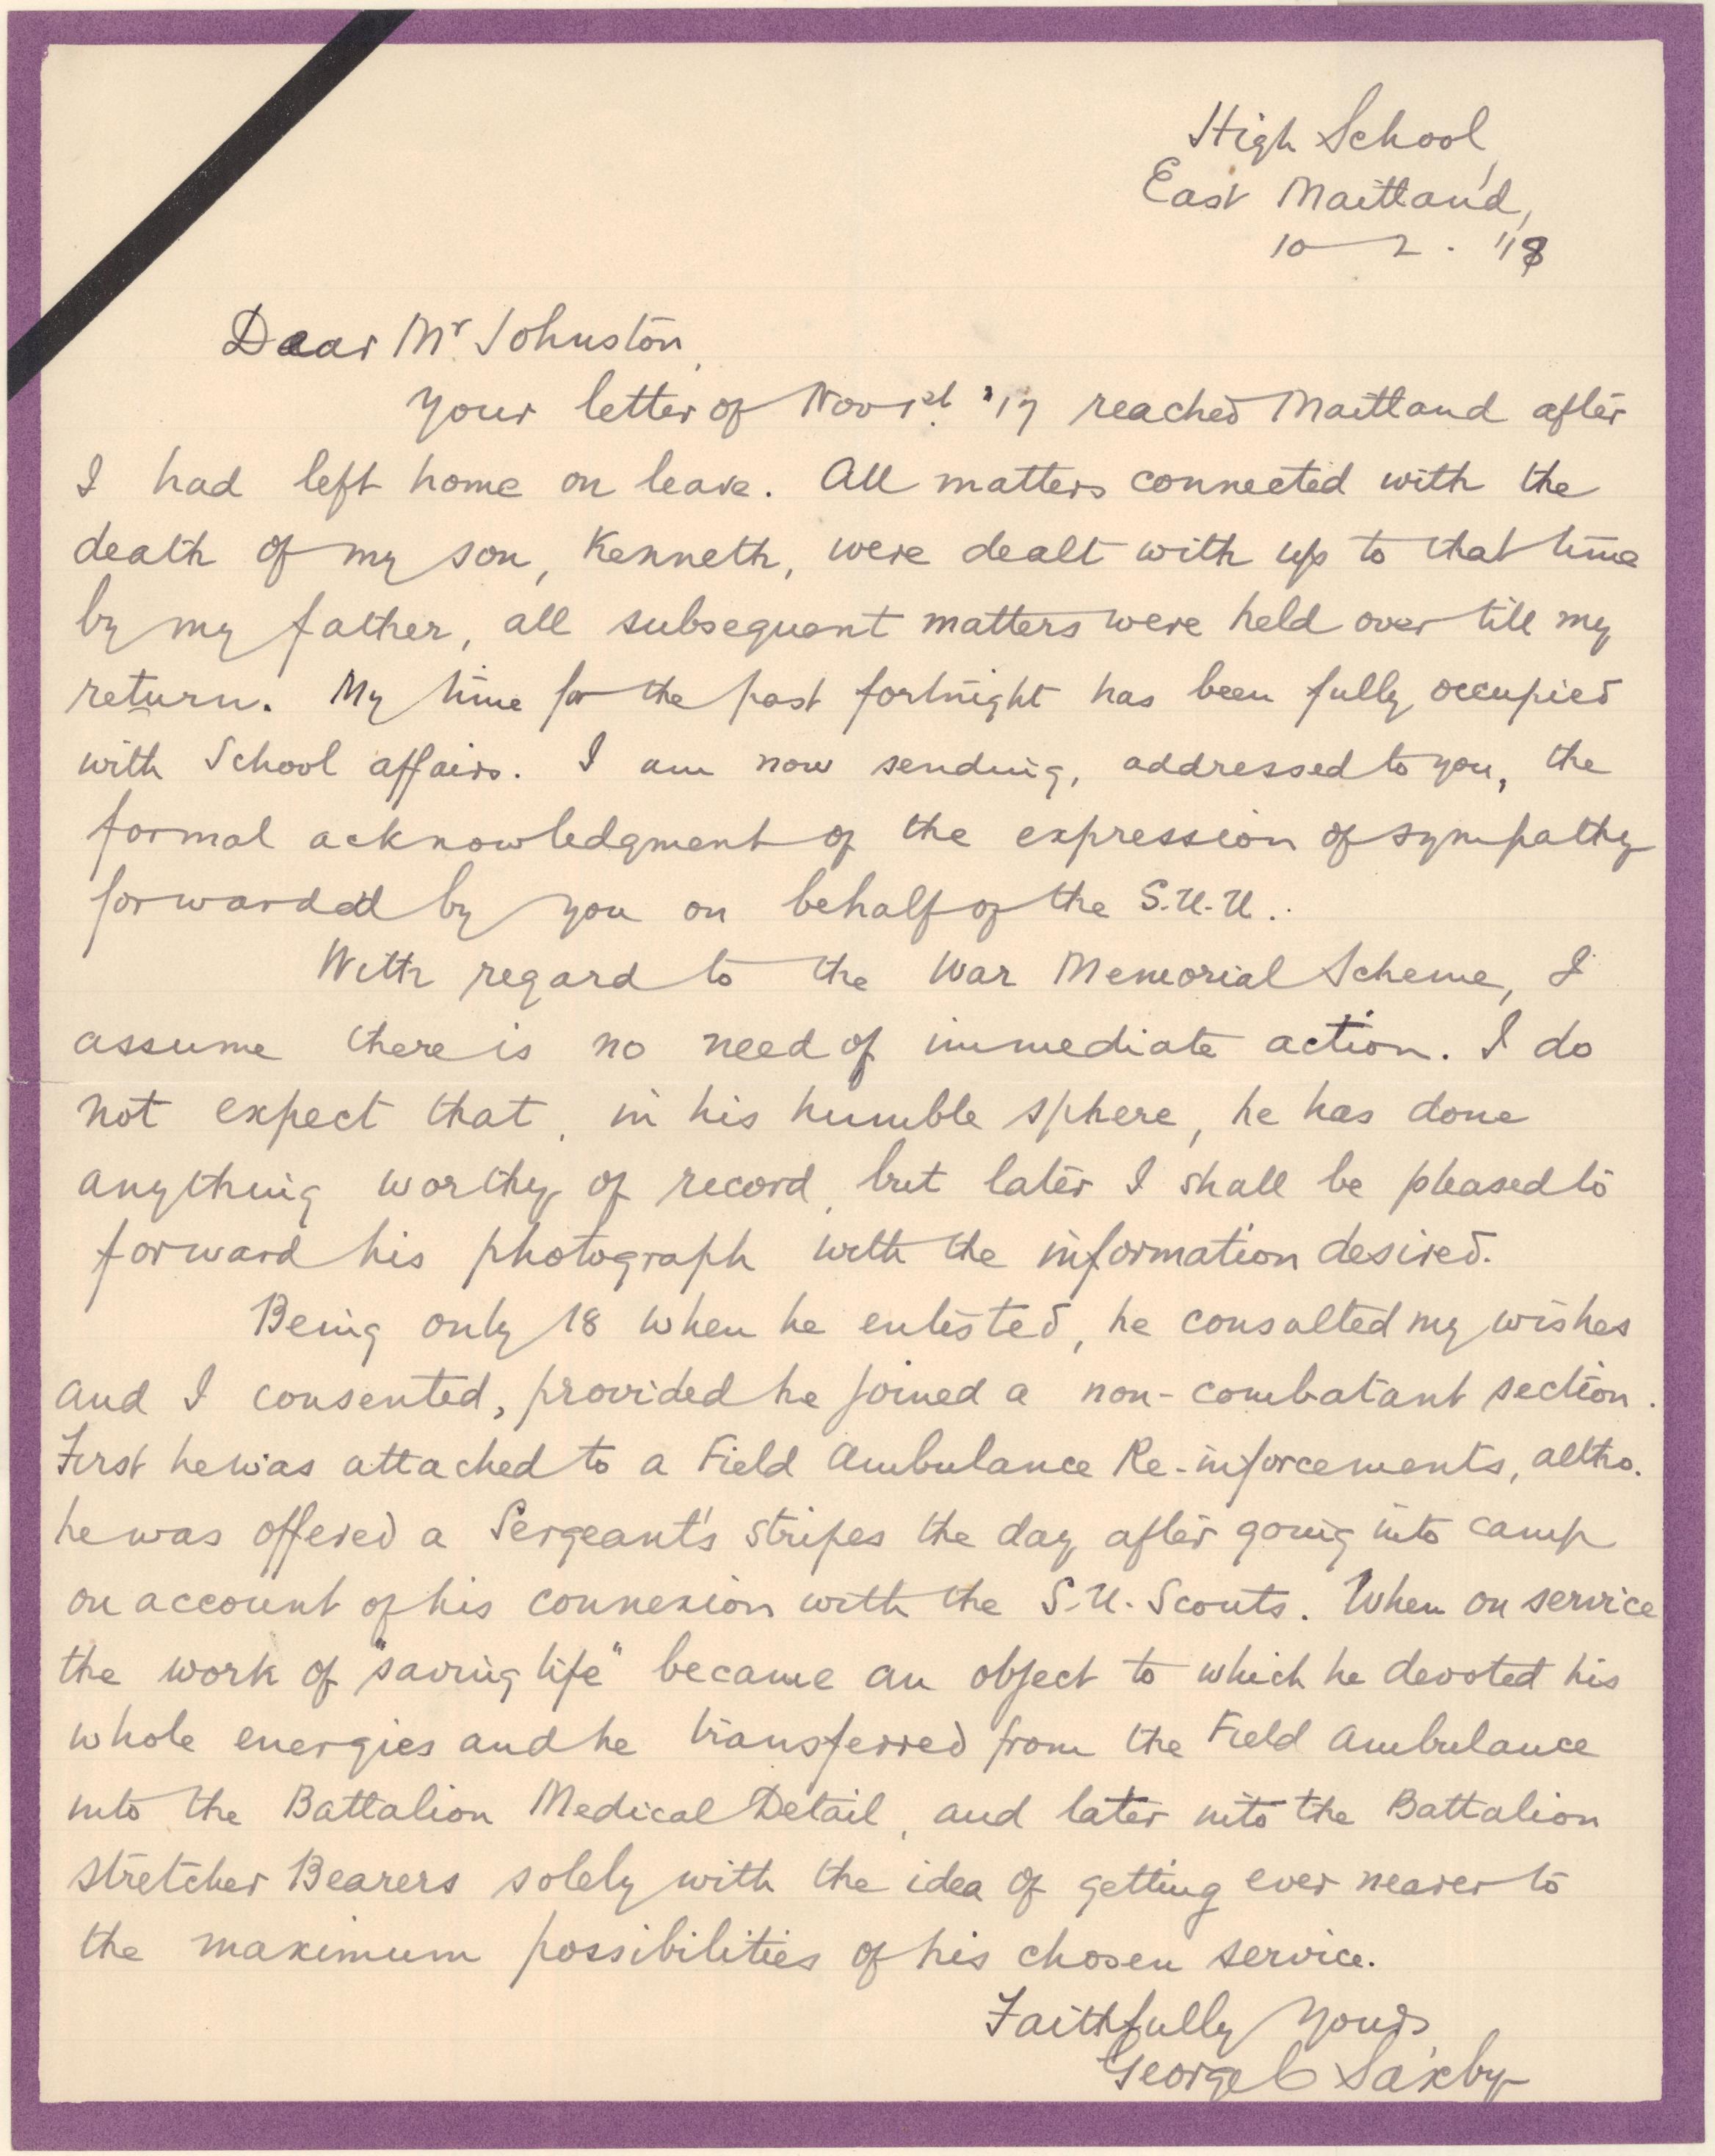 High School,
East Maitland,
10 - 2 . '18
Dear Mr. Johnston,
Your letter of Nov 1st '17 reached Maitland after
I had left home on leave. All matters connected with the
death of my son, Kenneth, were dealt with up to that time
by my father, all subsequent matters were held over till my
return. My time for the past fortnight has been fully occupied
with School affairs. I am now sending, addressed to you, the
formal acknowledgment of the expression of sympathy
forwarded by you on behalf of the S.U.U..
With regard to the War Memorial Scheme, I
assume there is no need of immediate action. I do
not expect that, in his humble sphere, he has done
anything worthy of record, but later I shall be pleased to
forward his photograph with the information desired.
Being only 18 when he enlisted, he consulted my wishes
and I consented, provided he joined a non-combatant section.
First he was attached to a Field Ambulance Re-inforcements, altho.
he was offered a Sergeant's stripes the day after going into camp
on account of his connexion with the S.U. Scouts. When on service
the work of "saving life" became an object to which he devoted his
whole energies and he transferred from the Field Ambulance
into the Battalion Medical Detail, and later into the Battalion
Stretcher Bearers solely with the idea of getting ever nearer to
the maximum possibilities of his chosen service.
Faithfully Yours
George C Saxby